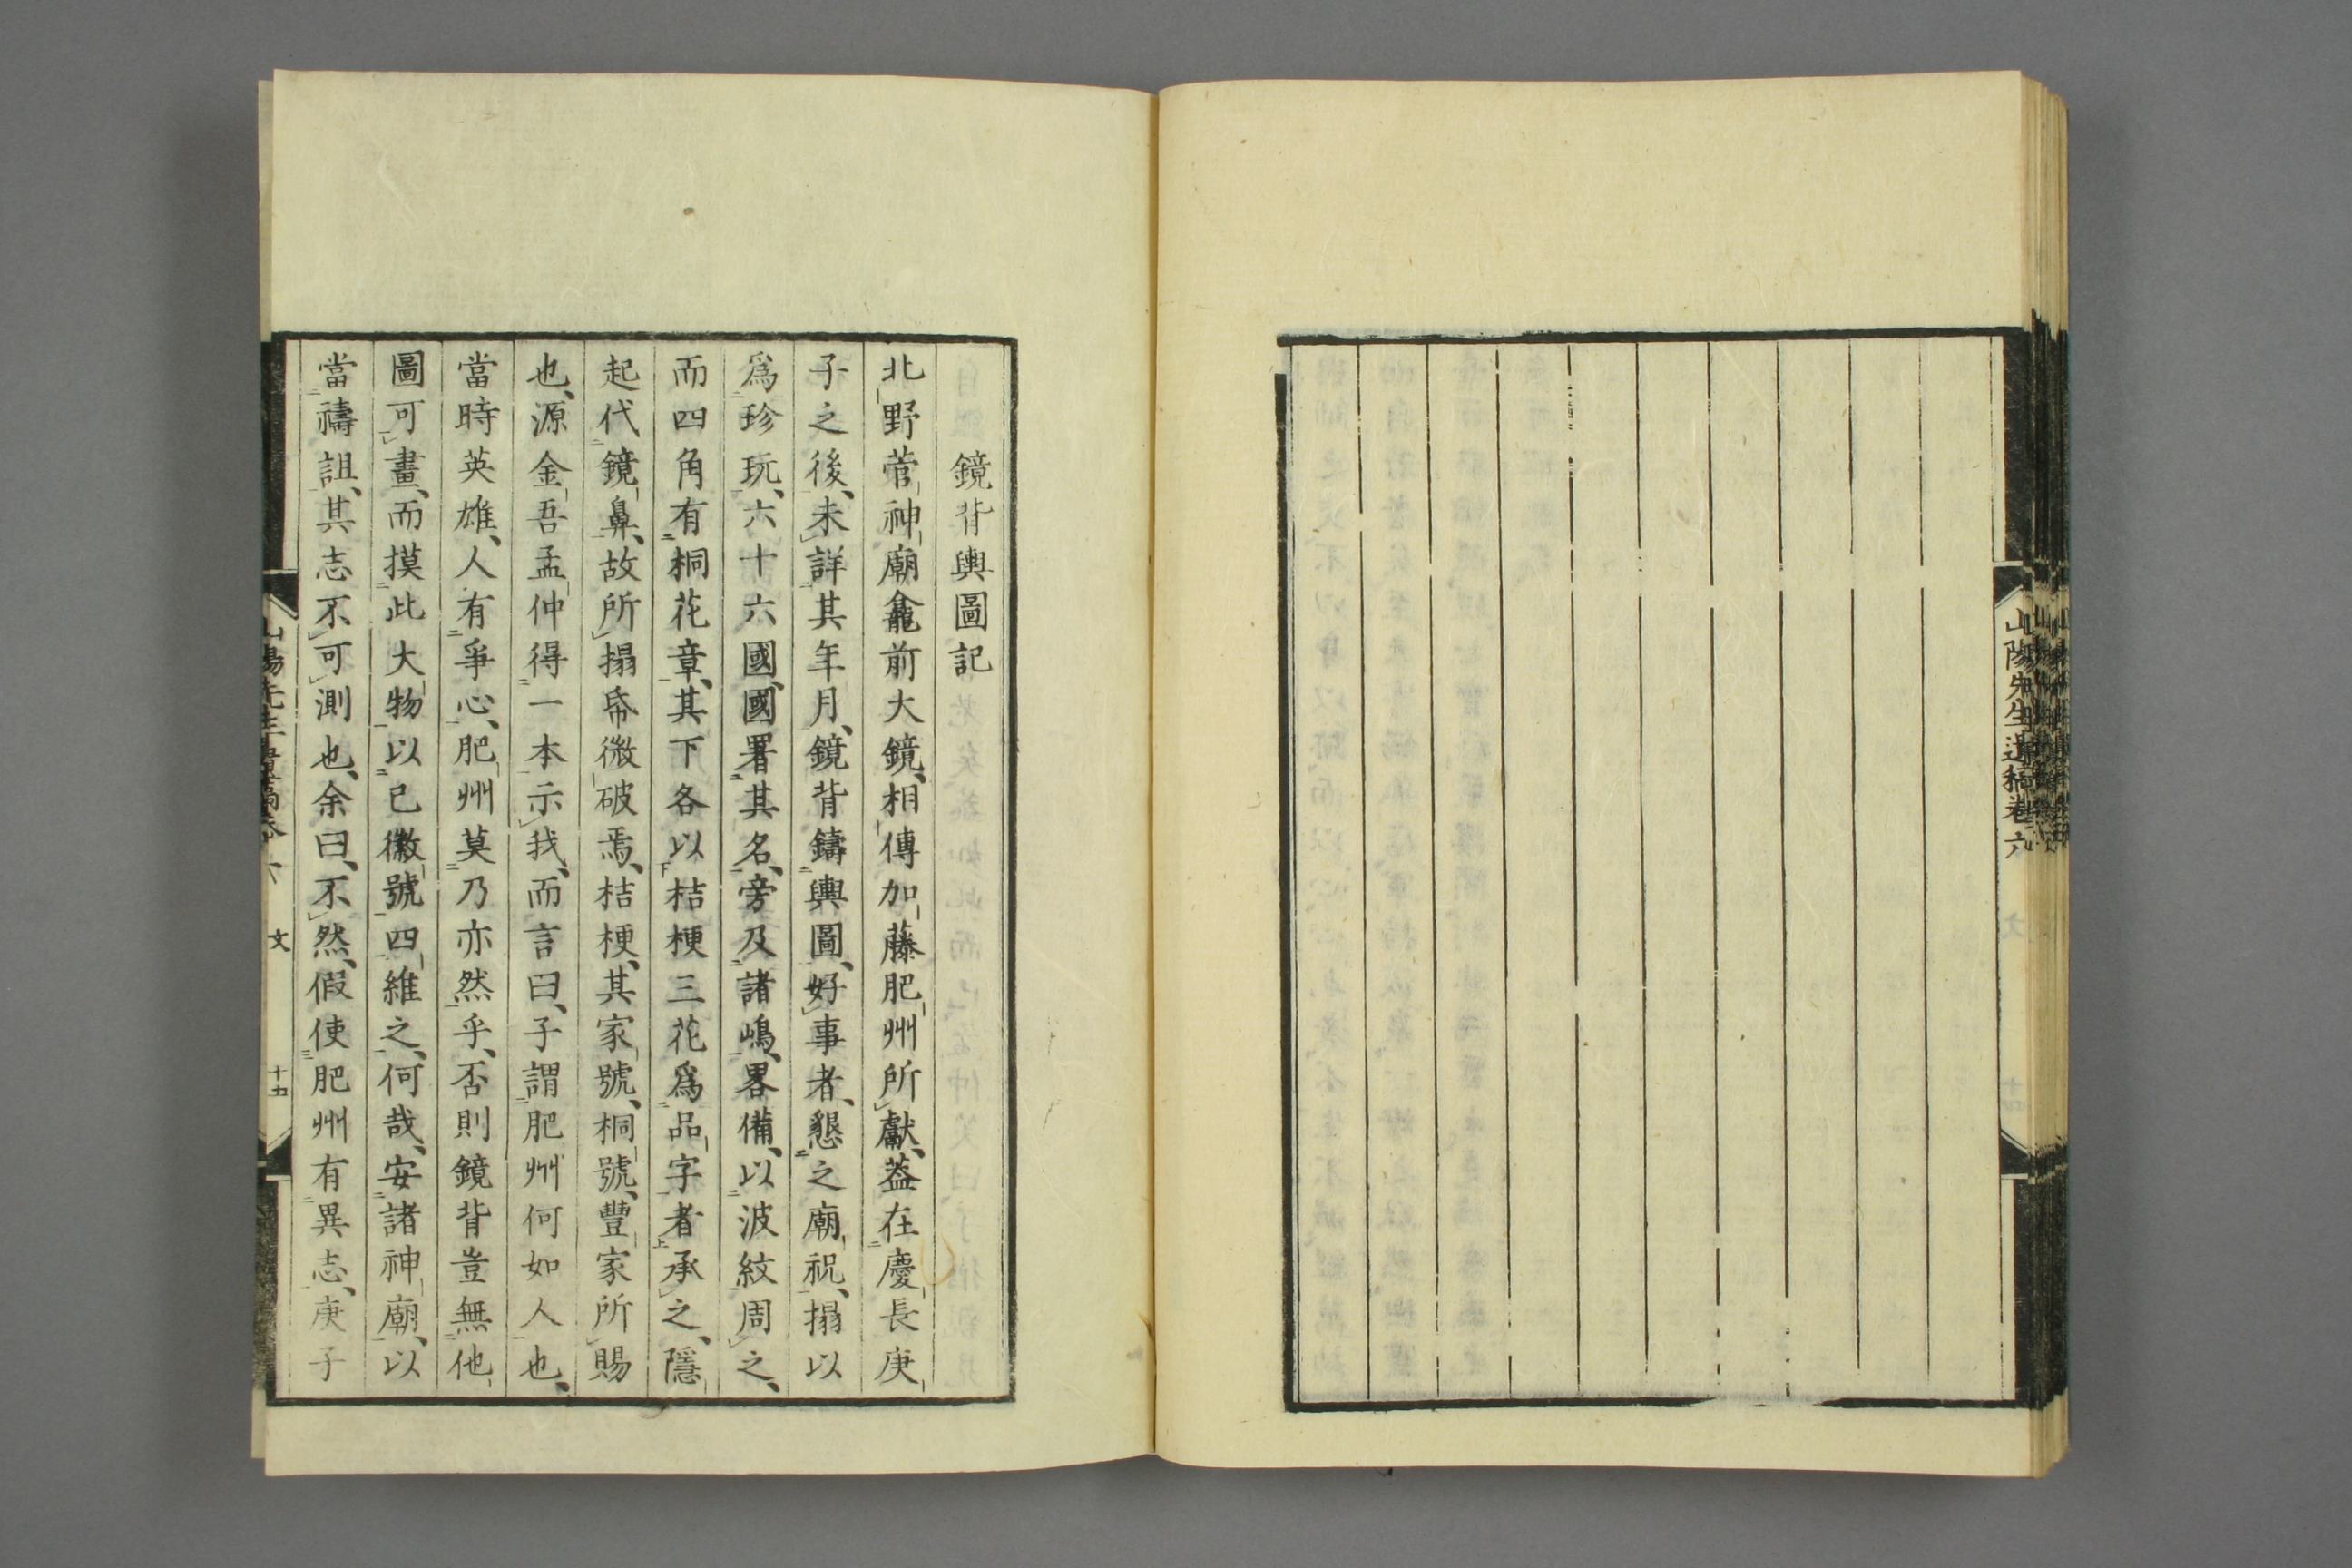 山陽先生遺稿卷六
鏡背輿圖記
北野菅神廟龕前大鏡、相傳加藤肥州所獻、葢在慶長庚
子之後、未詳其年月、鏡背鑄輿圖、好事者、懇之廟祝、搨以
爲珍玩、六十六國、國署其名、旁及諸嶋、畧備、以波紋周之、
而四角有桐花章、其下各以桔梗三花爲品字者承之、隱
起代鏡鼻、故所搨帋微破焉、桔梗、其家號、桐號、豐家所賜
也、源金吾孟仲得一本示我、而言曰、子謂肥州何如人也、
當時英雄、人有爭心、肥州莫乃亦然乎、否則鏡背豈無他
圖可畫、而摸此大物、以己徽號四維之、何哉、安諸神廟、以
當禱詛、其志不可測也、余曰、不然、假使肥州有異志、庚子
山陽先生遺稿卷六 文 十五